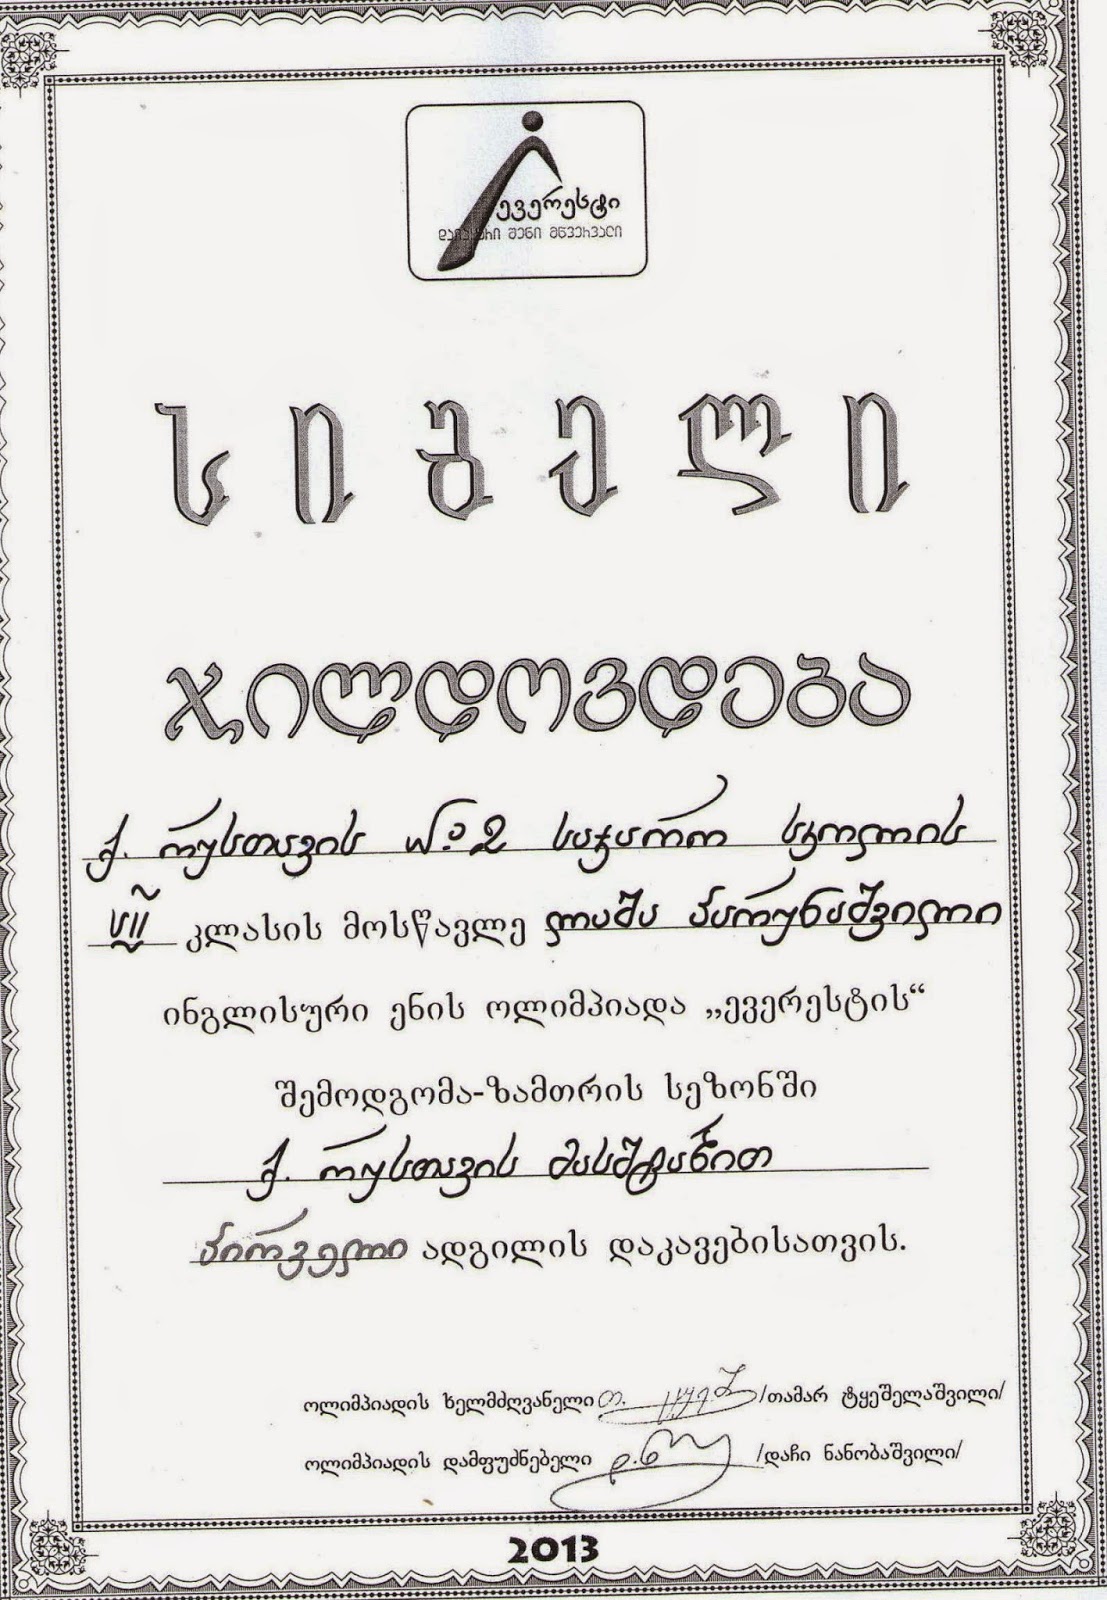 ევერესტი
დაიპყარი შენი მწვერვალი
სიგელი
ჯილდოვდება
ქ. რუსთავის №2 საჯარო სკოლის
VII კლასის მოსწავლე ლაშა პარუნაშვილი
ინგლისური ენის ოლიმპიადა „ევერესტის“
შემოდგომა-ზამთრის სეზონში
ქ. რუსთავის მასშტაბით
პირველი ადგილის დაკავებისათვის.
ოლიმპიადის ხელმძღვანელი /თამარ ტყეშელაშვილი/
ოლიმპიადის დამფუძნებელი /დაჩი ნანობაშვილი/
2013